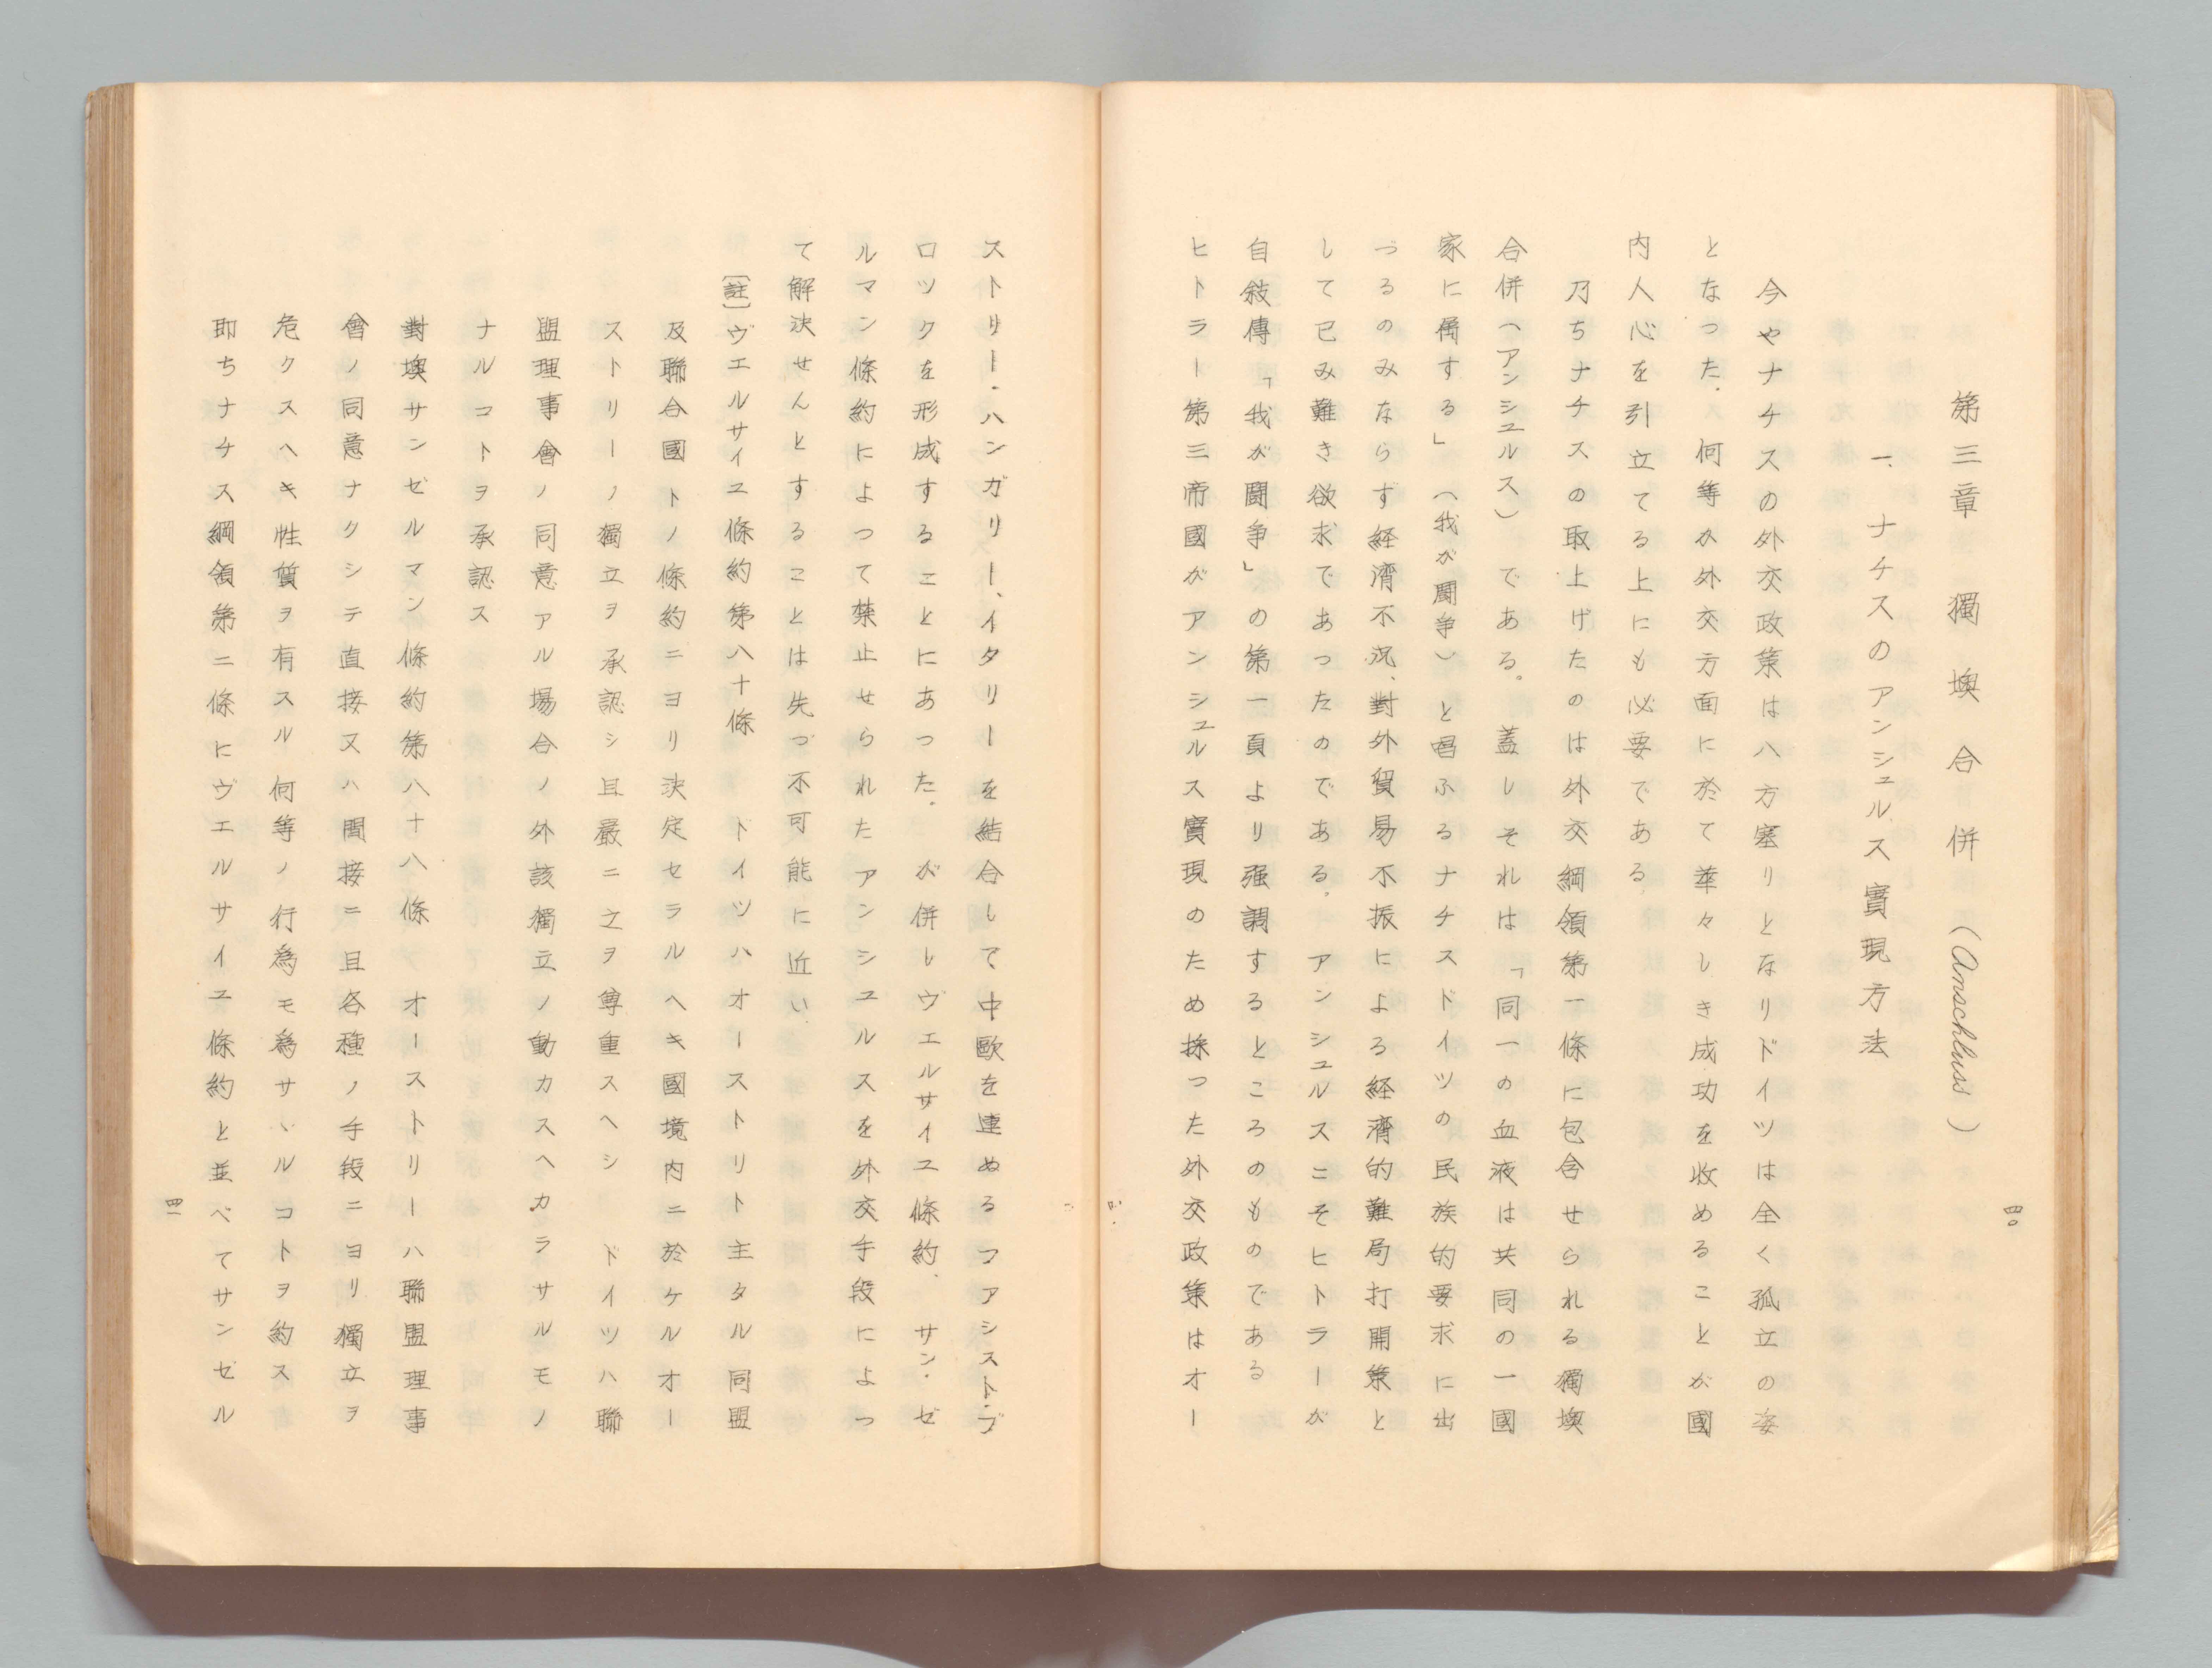 第三章　獨墺合併（Anschluss）
一、ナチスのアンシュルス實現方法
今やナチスの外交政策は八方塞りとなりドイツは全く孤立の姿
となつた。何等か外交方面に於て華々しき成功を收めることが國
内人心を引立てる上にも必要である
乃ちナチスの取上げたのは外交綱領第一條に包含せられる獨墺
合併（アンシュルス）である。蓋しそれは「同一の血液は共同の一國
家に屬する」（我が闘争）と唱ふるナチスドイツの民族的要求に出
づるのみならず経濟不況、對外貿易不振による経濟的難局打開策と
して已み難き欲求であつたのである。アンシュルスこそヒトラーが
自敍傳「我が闘争」の第一頁より强調するところのものである
ヒトラー第三帝國がアンシュルス實現のため採つた外交政策はオー
四〇
ストリー・ハンガリー、イタリーを結合して中歐を連ぬるファシスト・ブ
ロックを形成することにあつた。が併しヴェルサイユ條約、サン・ゼ
ルマン條約によつて禁止せられたアンシュルスを外交手段によつ
て解決せんとすることは先づ不可能に近い
〔註〕ヴエルサイユ條約第八十條　トイツハオーストリト主タル同盟
及聯合國トノ條約ニヨリ決定セラルヘキ國境内ニ於ケルオー
ストリーノ獨立ヲ承認シ且嚴ニ之ヲ尊重スヘシ　ドイツハ聯
盟理事會ノ同意アル場合ノ外該獨立ノ動カスヘカラサルモノ
ナルコトヲ承認ス
對墺サンゼルマン條約第八十八條　オーストリーハ聯盟理事
會ノ同意ナクシテ直接又ハ間接ニ且各種ノ手段ニヨリ獨立ヲ
危クスヘキ性質ヲ有スル何等ノ行為モ為サヽルコトヲ約ス
即ちナチス綱領第二條にヴエルサイユ條約と並べてサンゼル
四一